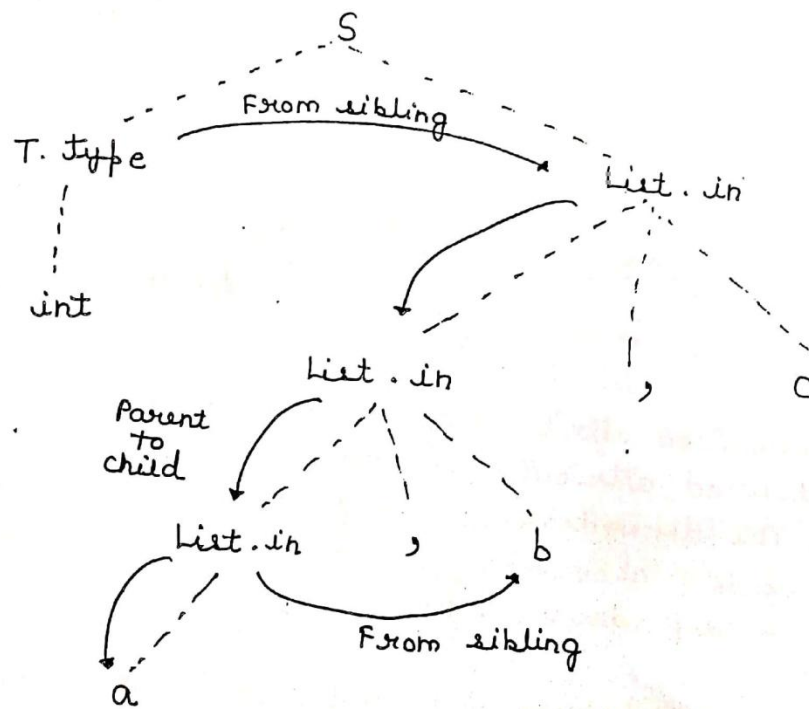 S
From sibling
T. type
List. in
int
List. in
,
C
Parent
to
child
List. in
,
b
From sibling
a